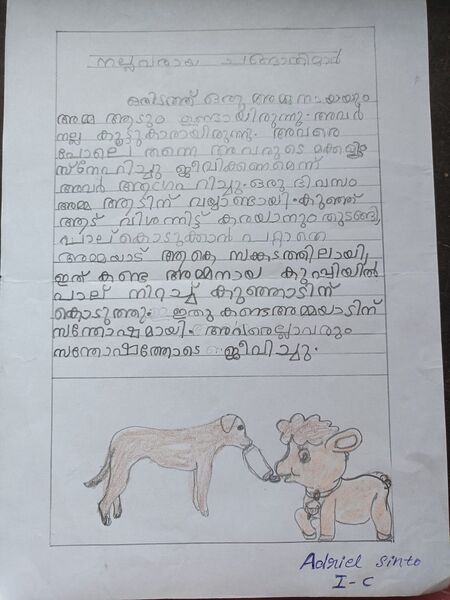 നല്ലവരായ ചങ്ങാതിമാർ
ഒരിടത്ത് ഒരു അമ്മ നായയും
അമ്മ ആടും ഉണ്ടായിരുന്നു. അവർ
നല്ല കൂട്ടുകാരായിരുന്നു. അവരെ
പോലെ തന്നെ അവരുടെ മക്കളും
സ്നേഹിച്ചു ജീവിക്കണമെന്ന്
അവർ ആഗ്രഹിച്ചു. ഒരു ദിവസം
അമ്മ ആടിന് വയ്യാണ്ടായി. കുഞ്ഞ്
ആട് വിശന്നിട്ട് കരയാനും തുടങ്ങി,
പാല് കൊടുക്കാൻ പറ്റാതെ
അമ്മയാട് ആകെ സങ്കടത്തിലായി,
ഇത് കണ്ട അമ്മനായ കുപ്പിയിൽ
പാല് നിറച്ച് കുഞ്ഞാടിന്
കൊടുത്തു. ഇതു കണ്ടഅമ്മയാടിന്
സന്തോഷമായി. അവരെല്ലാവരും
സന്തോഷത്തോടെ ജീവിച്ചു.
Adriel Sinto
I - C